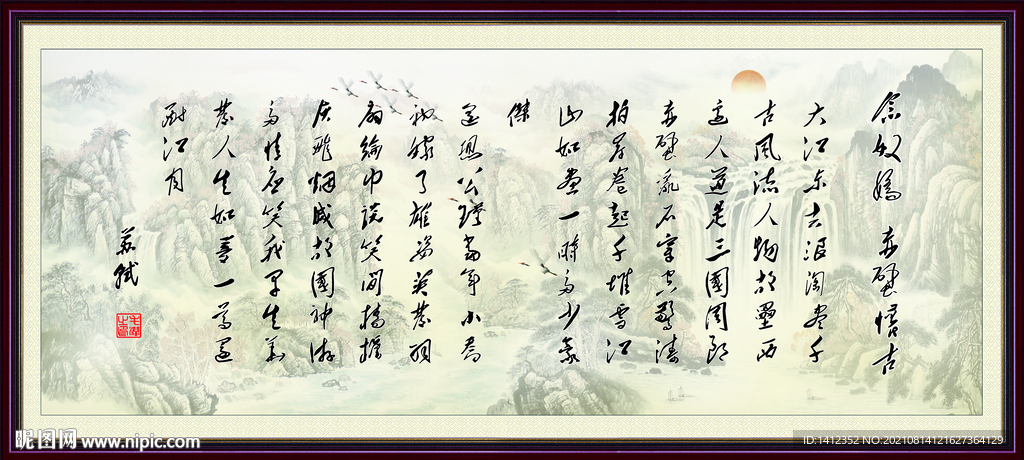 念奴嬌 赤壁懷古
大江东去浪淘盡千
古風流人物故壘西
邊人道是三國周郎
赤壁亂石穿空驚濤
拍岸卷起千堆雪江
山如畫一時多少豪
傑
遥想公瑾當年小喬
初嫁了雄姿英發羽
扇綸巾談笑間檣櫓
灰飛烟滅故國神游
多情應笑我早生華
發人生如夢一尊還
酹江月
蘇軾
昵图网 www.nipic.com
ID:1412352 NO:20210814121627364129